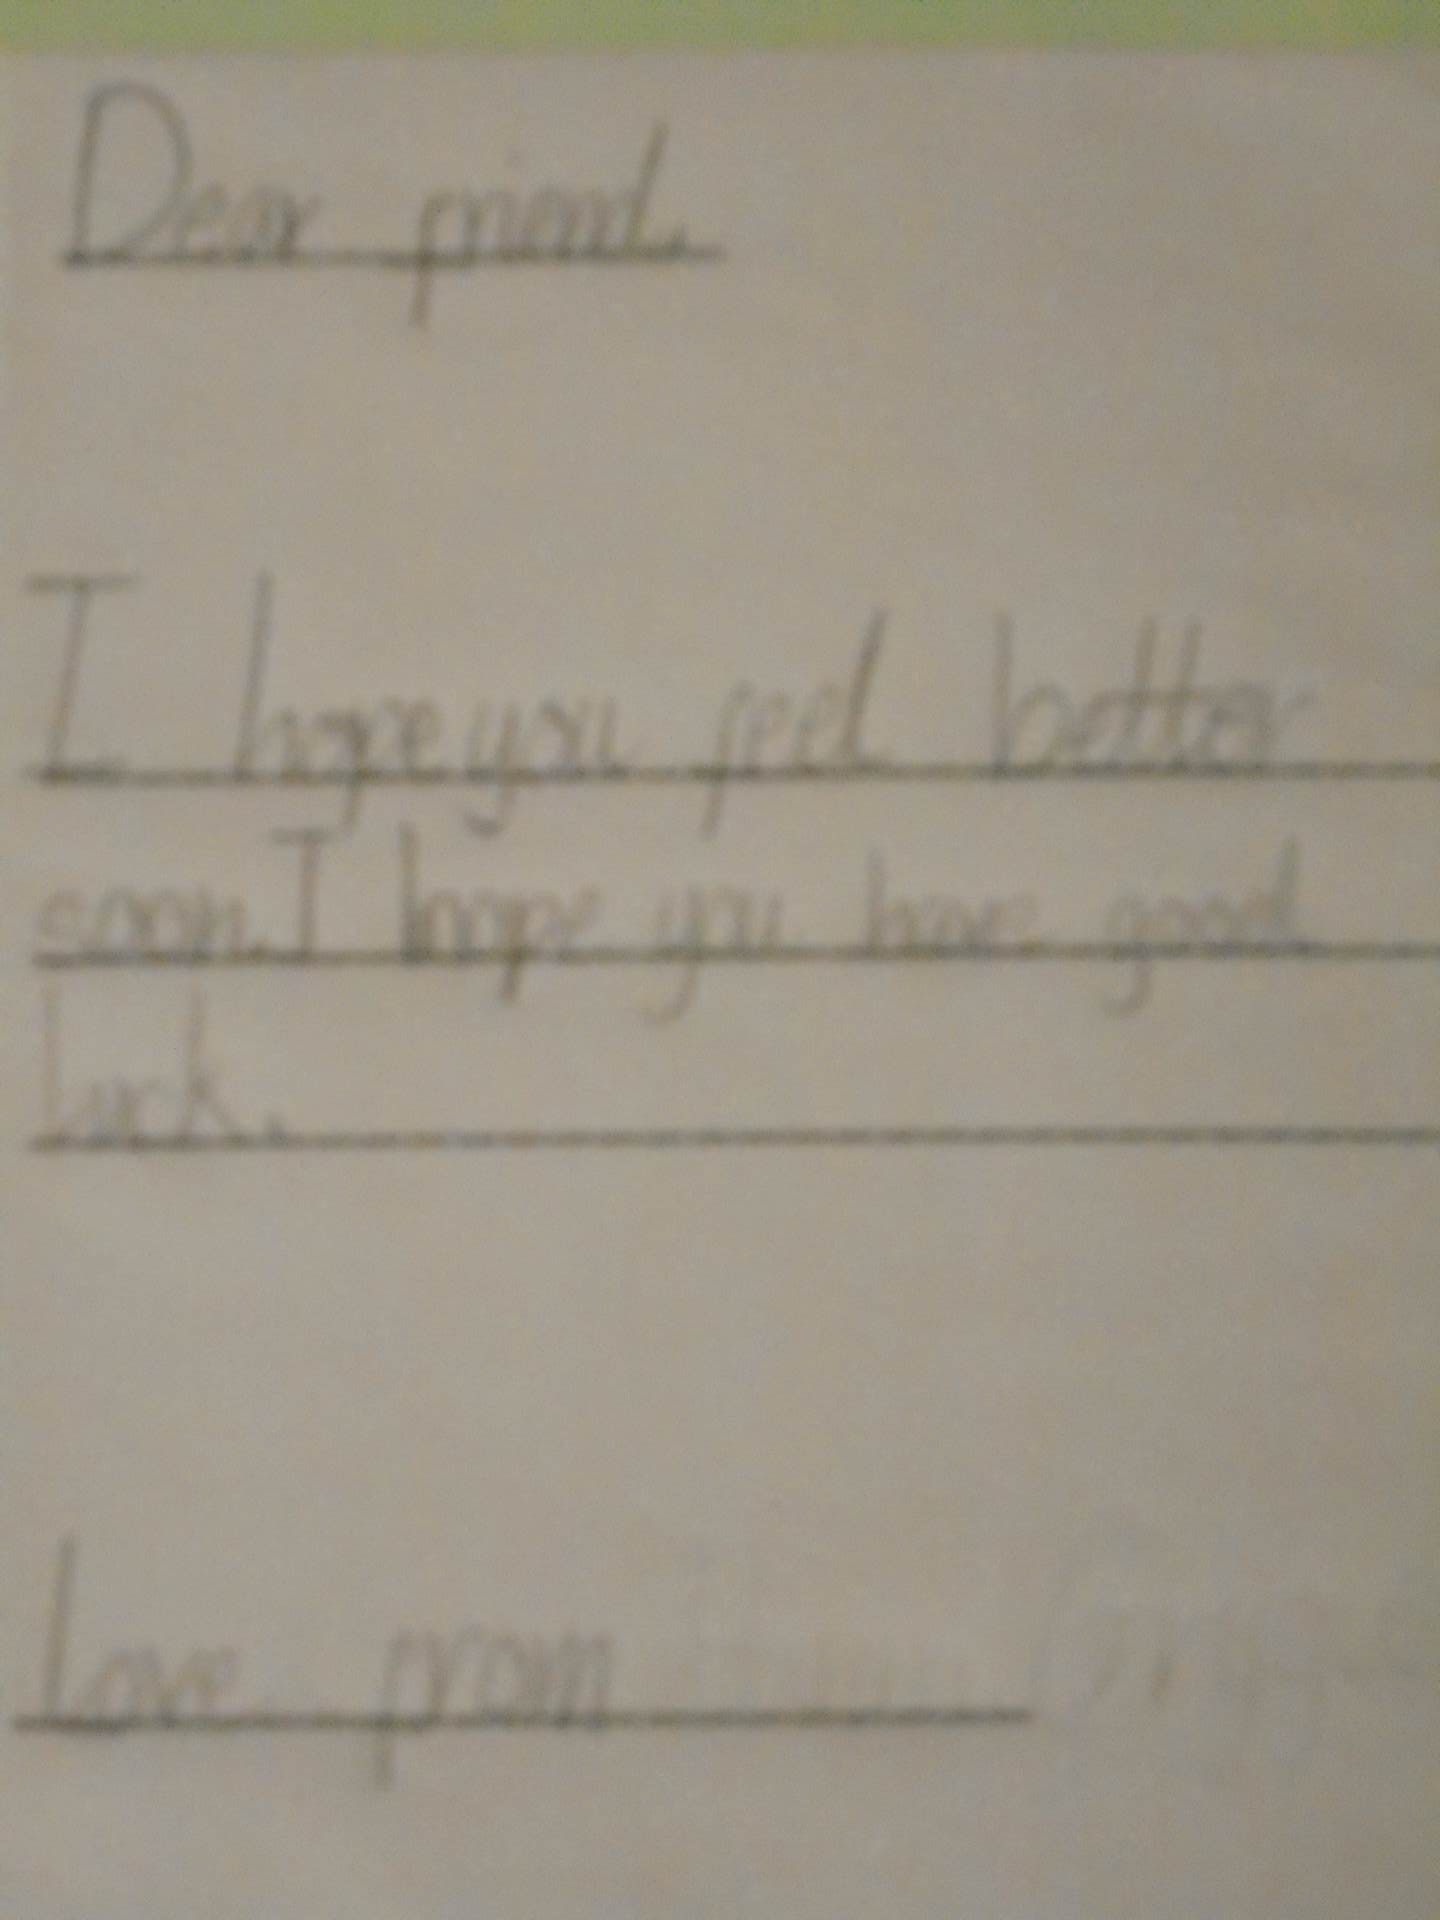 Dear friend.
I hope you feel better
soon. I hope you have good
luck.
Love from